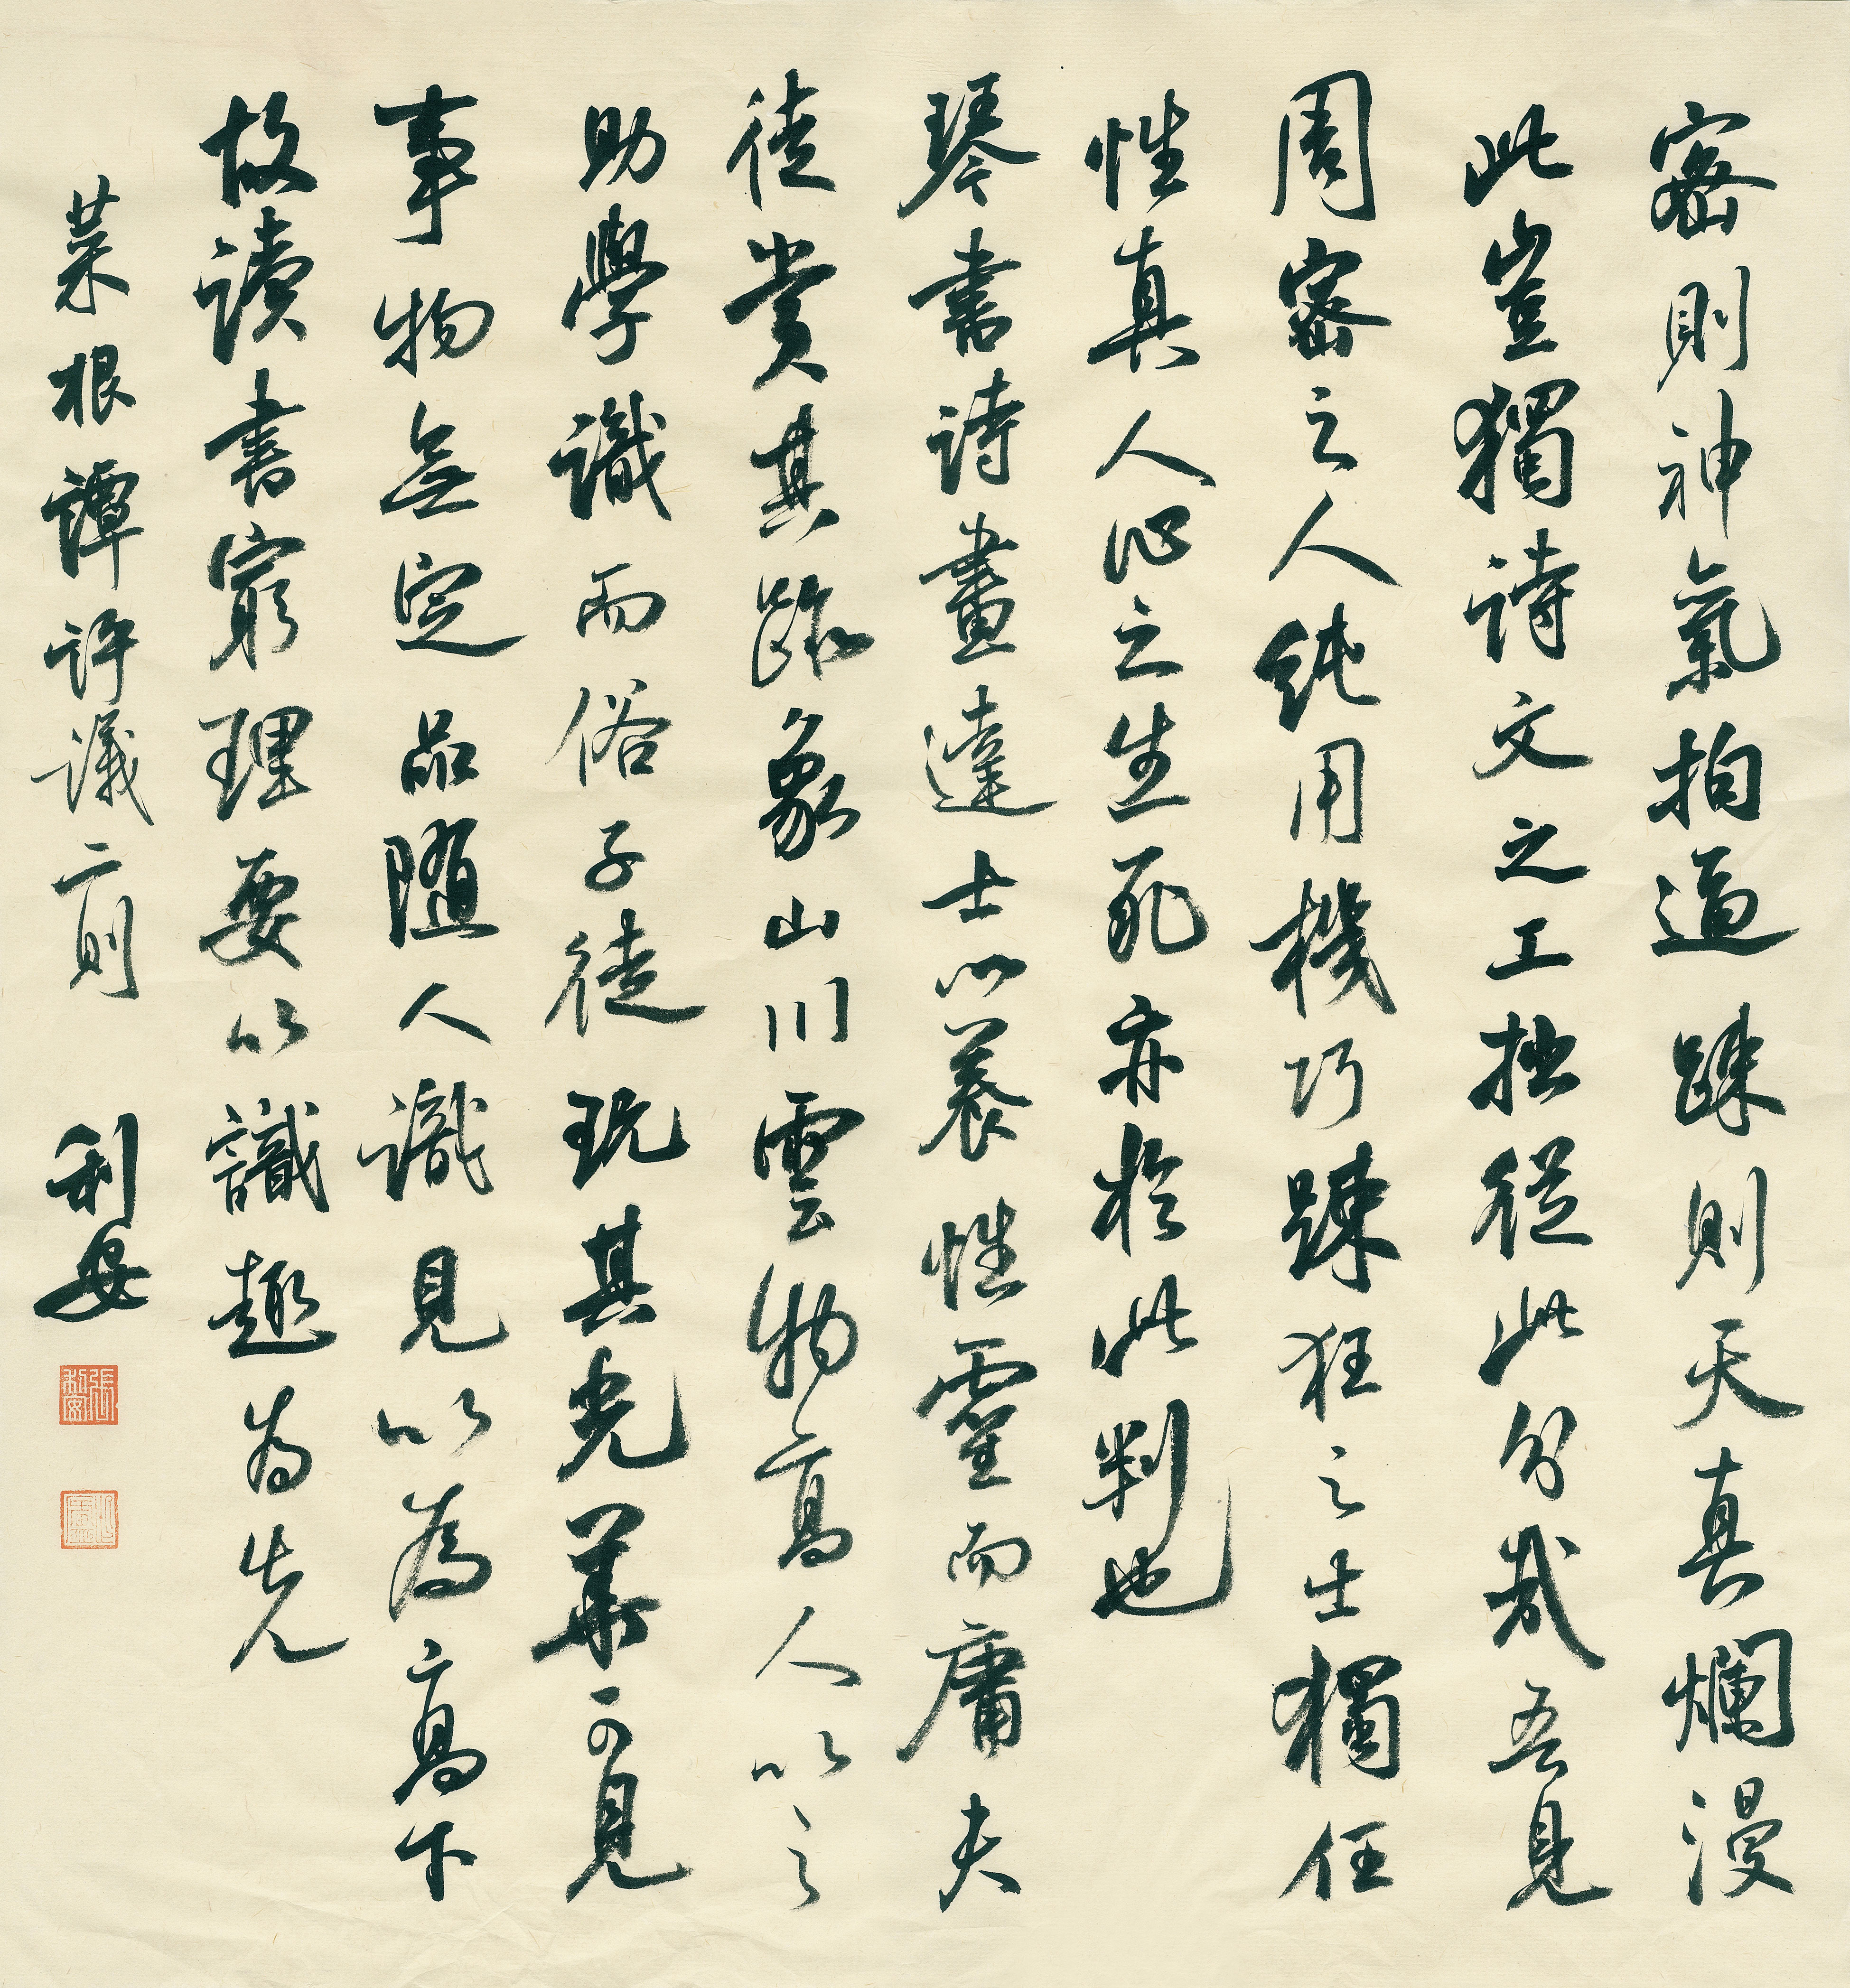 密則神氣拘逼踈則天真爛漫
此豈獨詩文之工拙從此分哉吾見
周密之人純用機巧踈狂之士獨任
性真人心之生死亦於此判也
琴書詩畫達士以養性靈而庸夫
徒賞其跡象山川雲物高人以之
助學識而俗子徒玩其光華可見
事物無定品隨人識見以為高下
故讀書窮理要以識趣為先
菜根譚評議二則 利安
張利安